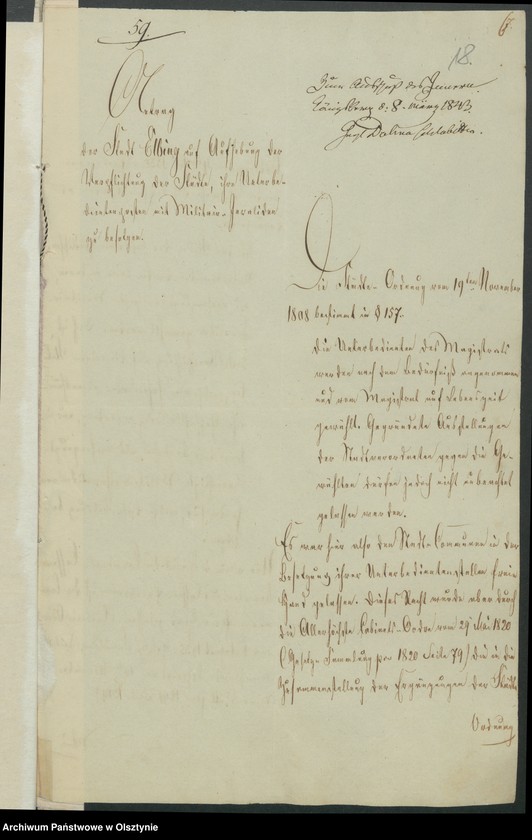 59.
6.
18.
Zum Ausschuß des Innern.
Königsberg d. 8. März 1843.
Antrag
der Stadt Elbing auf Aufhebung der
Verpflichtung der Städte, ihre Unterbe-
dientenposten mit Militair-Invaliden
zu besetzen.
Die Städte-Ordnung vom 19ten November
1808 bestimmt in § 157.
die Unterbedienten des Magistrats
werden nach dem Bedürfniß angenommen
und vom Magistrat auf Lebenszeit
gewählt. Gegründete Ausstellungen
der Stadtverordneten gegen die Ge-
wählten dürfen jedoch nicht unbeachtet
gelassen werden.
Es war hier also den Stadt-Communen in der
Besetzung ihrer Unterbedientenstellen freie
Hand gelassen. Dieses Recht wurde aber durch
die Allerhöchste Cabinets-Ordre vom 29 Mai 1820
(Gesetz-Sammlung pro 1820 Seite 79) die in die
Zusammenstellung der Ergänzungen der Städte
Ordnung
Archiwum Państwowe w Olsztynie